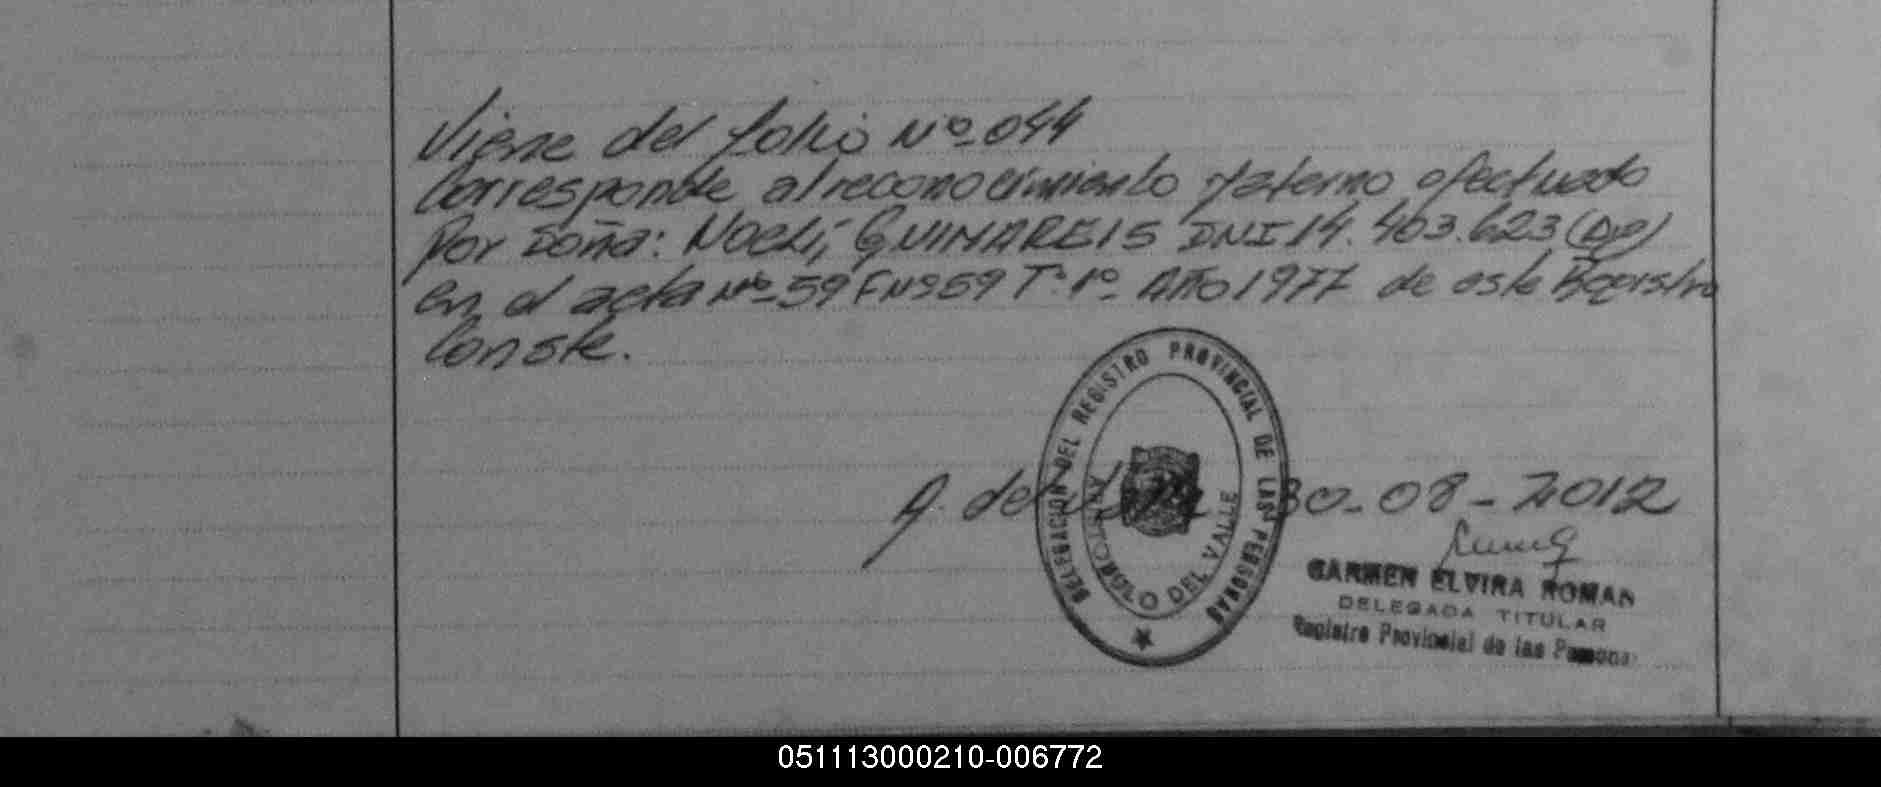 Viene del folio Nº 044
Corresponde al reconocimiento Materno efectuado
Por Doña: Noeli, GUIMAREIS DNI 14.403.623
en el acta Nº 59 F Nº 59 Tº 1º Año 1977 de este Registro
Conste.
A. del Valle 30-08-2012
DELEGACION DEL REGISTRO PROVINCIAL DE LAS PERSONAS
ARISTOBULO DEL VALLE
CARMEN ELVIRA ROMAN
DELEGADA TITULAR
Registro Provincial de las Personas
051113000210-006772